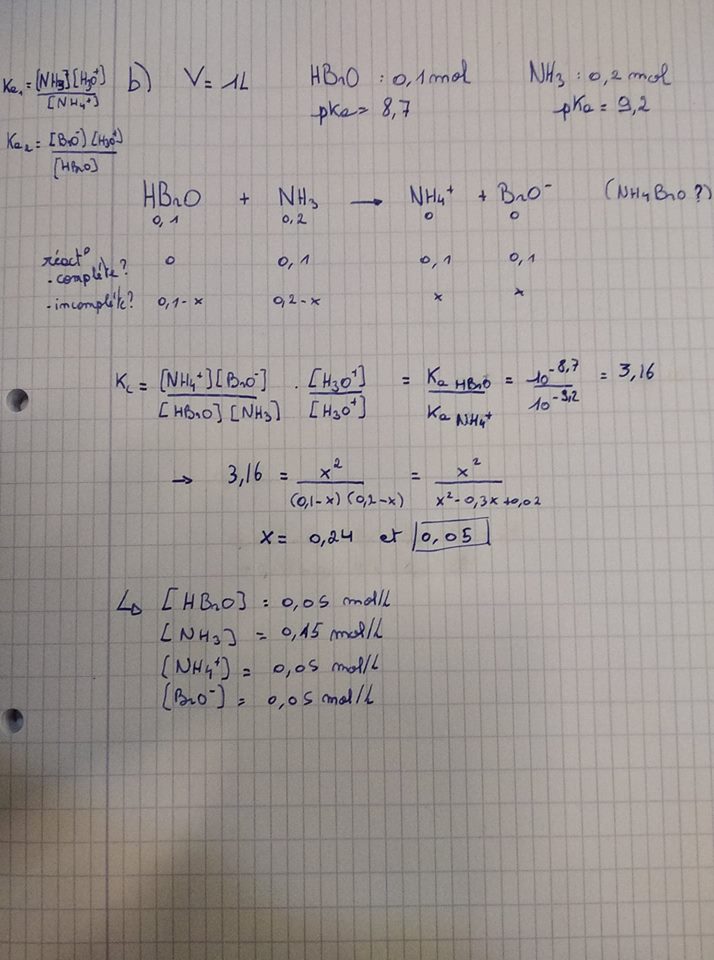 Ka₁ = [NH3][H3O+] / [NH4+]
b) V = 1L HBrO : 0,1 mol NH3 : 0,2 mol
pKa = 8,7 pKa = 9,2
Ka₂ = [BrO-][H3O+] / [HBrO]
HBrO + NH3 → NH4+ + BrO- (NH4BrO ?)
0,1 0,2 0 0
réact°
- complète? 0 0,1 0,1 0,1
- incomplète? 0,1-x 0,2-x x x
Kc = [NH4+][BrO-] / [HBrO][NH3] . [H3O+] / [H3O+] = Ka HBrO / Ka NH4+ = 10^-8,7 / 10^-9,2 = 3,16
→ 3,16 = x² / (0,1-x)(0,2-x) = x² / x²-0,3x+0,02
x = 0,24 et 0,05
↳ [HBrO] = 0,05 mol/L
[NH3] = 0,15 mol/L
[NH4+] = 0,05 mol/L
[BrO-] = 0,05 mol/L